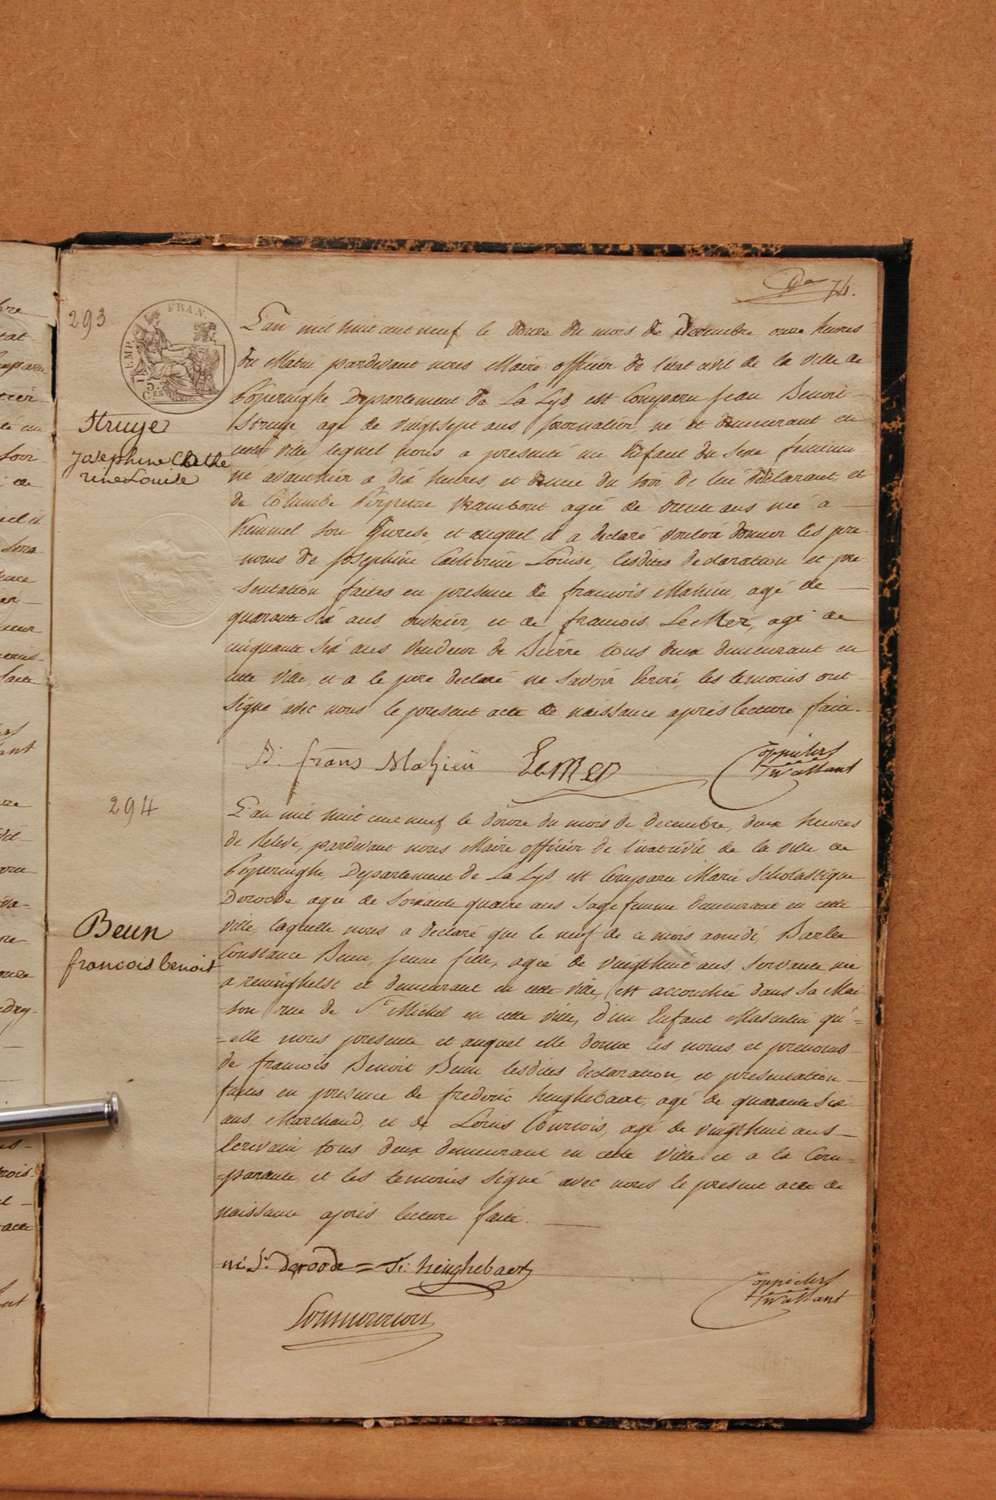 74.
293
L'an mil huit cent neuf le douze du mois de Decembre onze heures
du Matin pardevant nous Maire officier de l'etat civil de la ville de
Poperinghe Departement de La Lys est Comparu jean Benoit
Struye
Struye agé de vingtsept ans journalier né et demeurant en
Josephine Cathe
rine Louise
cette ville lequel nous a presenté un Enfant du Sexe feminin
né avanthier a dix heures et demie du soir de lui declarant et
de Colombe Perpetue agée de trente ans née à
Kemmel son Epouse, et auquel il a declaré vouloir donner les pre
noms de Josephine Catherine Louise, lesdites declaration et pre
sentation faites en presence de francois Mahieu, agé de
quarante six ans ouvrier, et de francois LeMer, agé de
cinquante six ans vendeur de Bierre, tous deux demeurant en
cette ville, et a le pere declaré ne savoir Ecrire, les temoins ont
signé avec nous le present acte de naissance après lecture faite.
frans Mahieu LeMer
294
L'an mil huit cent neuf le douze du mois de decembre, deux heures
de Relevé, pardevant nous Maire officier de l'etat civil de la ville de
Poperinghe, Departement de La Lys est Comparu Marie Scholastique
Deroode agée de soixante quatre ans sagefemme demeurant en cette
Beun
francois benoit
ville, laquelle nous a declaré que le neuf de ce mois a midi, Barbe
Constance Beun, jeune fille, agée de vingthuit ans servante née
a reninghelst et demeurant en cette ville, est accouchée dans sa Mai
son rue de St Michel en cette ville, d'un Enfant Masculin qu'=
=elle nous presente et auquel elle donne les noms et prenoms
de francois Benoit Beun lesdites declaration, et presentation
faites en presence de frederic henghebaert, agé de quarante six
ans, Marchand, et de Louis Courtois, agé de vingthuit ans
Ecrivain tous deux demeurant en cette ville et a la Com=
=parante, et les temoins signé avec nous le present acte de
naissance après lecture faite.
deroode = henghebaert